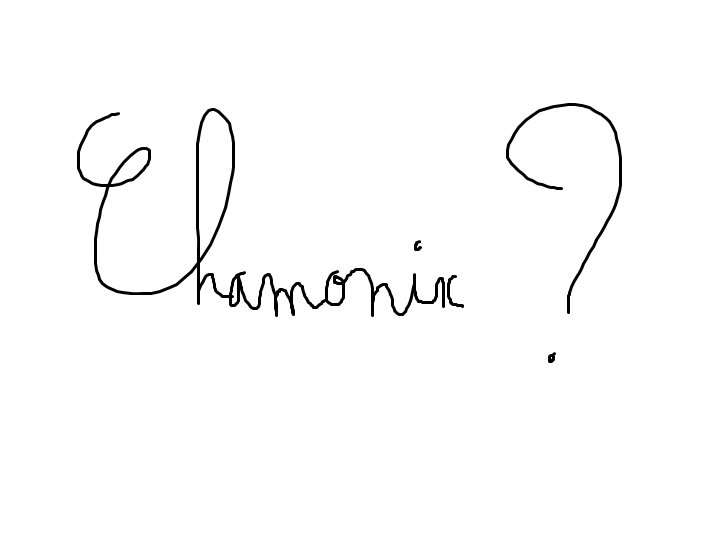 Chamonix ?